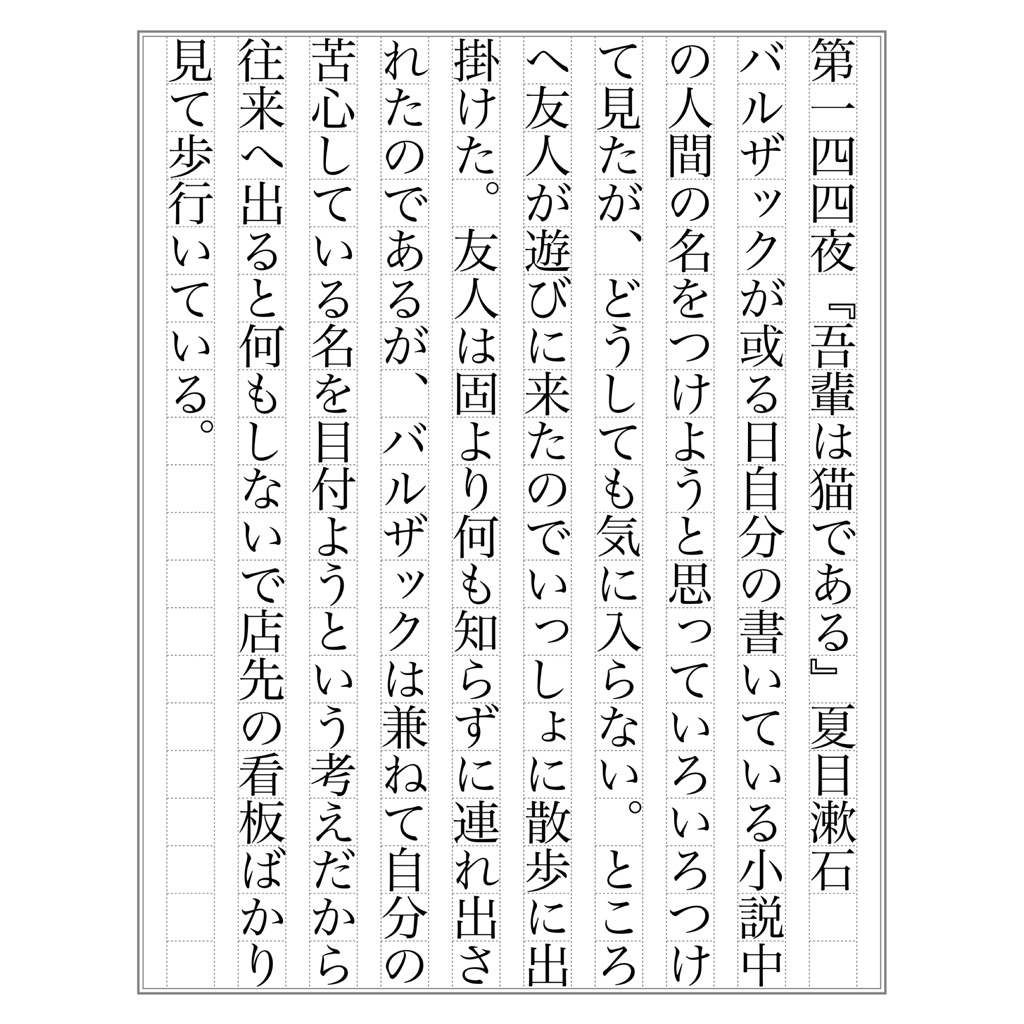 第一四四夜『吾輩は猫である』夏目漱石
バルザックが或る日自分の書いている小説中
の人間の名をつけようと思っていろいろつけ
て見たが、どうしても気に入らない。ところ
へ友人が遊びに来たのでいっしょに散歩に出
掛けた。友人は固より何も知らずに連れ出さ
れたのであるが、バルザックは兼ねて自分の
苦心している名を目付ようという考えだから
往来へ出ると何もしないで店先の看板ばかり
見て歩行いている。